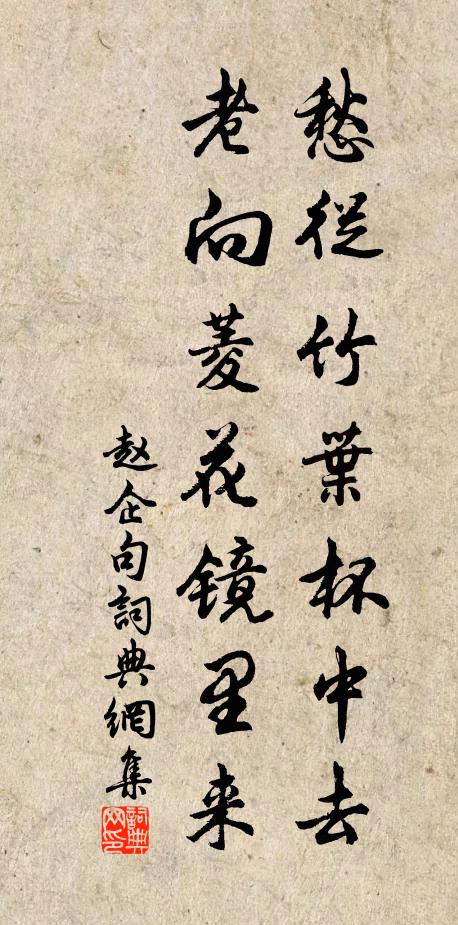 愁從竹葉杯中去
老向菱花镜里来
赵企句詞典網集
詞典网印